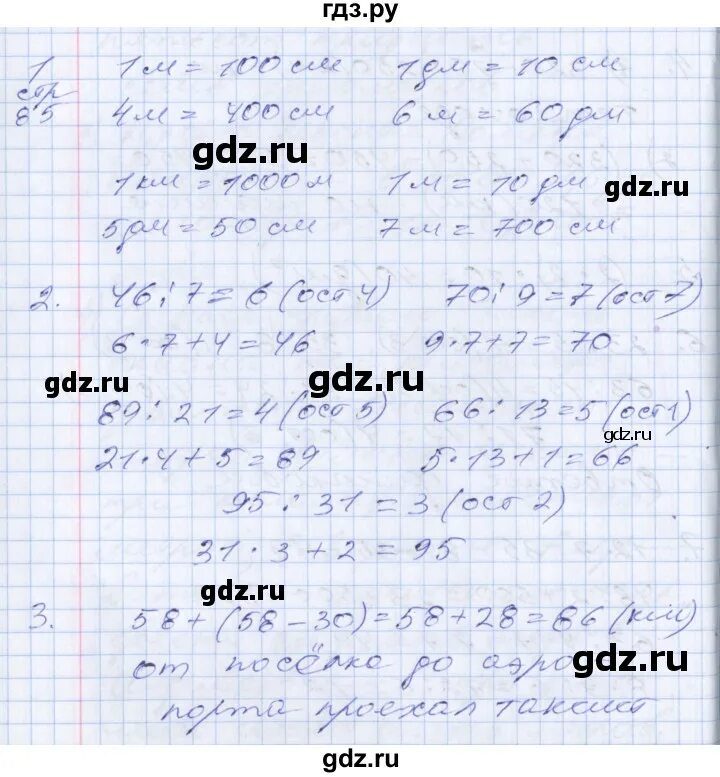 гдз.ру
1 1 м = 100 см 1 дм = 10 см
стр
85 4 м = 400 см 6 м = 60 дм
gdz.ru
1 км = 1000 м 1 м = 10 дм
gdz.ru
5 дм = 50 см 7 м = 700 см
2. 46 : 7 = 6 (ост 4) 70 : 9 = 7 (ост 7)
6 · 7 + 4 = 46 9 · 7 + 7 = 70
gdz.ru gdz.ru
89 : 21 = 4 (ост 5) 66 : 13 = 5 (ост 1)
gdz.ru
21 · 4 + 5 = 89 5 · 13 + 1 = 66
95 : 31 = 3 (ост 2)
31 · 3 + 2 = 95
gdz.ru
3. 58 + (58 - 30) = 58 + 28 = 86 (км)
от посёлка до аэро
gdz.ru
порта проехал таксист
gdz.ru